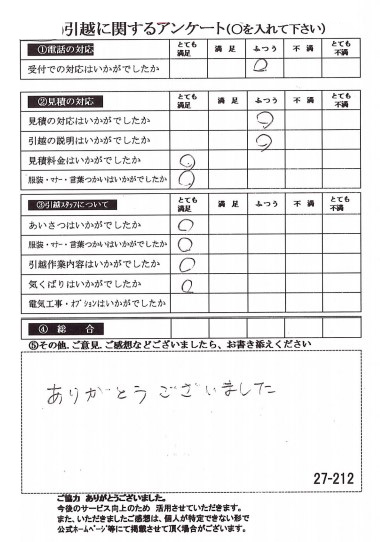 引越に関するアンケート(○を入れて下さい)
①電話の対応 とても満足 満 足 ふつう 不 満 とても不満
受付での対応はいかがでしたか ○
②見積の対応 とても満足 満 足 ふつう 不 満 とても不満
見積の対応はいかがでしたか ○
引越の説明はいかがでしたか ○
見積料金はいかがでしたか ○
服装・マナー・言葉つかいはいかがでしたか ○
③引越スタッフについて とても満足 満 足 ふつう 不 満 とても不満
あいさつはいかがでしたか ○
服装・マナー・言葉つかいはいかがでしたか ○
引越作業内容はいかがでしたか ○
気くばりはいかがでしたか ○
電気工事・オプションはいかがでしたか
④ 総 合
⑤その他、ご意見、ご感想などございましたら、お書き添えください
ありがとうございました
27-212
ご協力 ありがとうございました。
今後のサービス向上のため 活用させていただきます。
また、いただきましたご感想は、個人が特定できない形で
公式ホームページ等にて掲載させて頂く場合がございます。